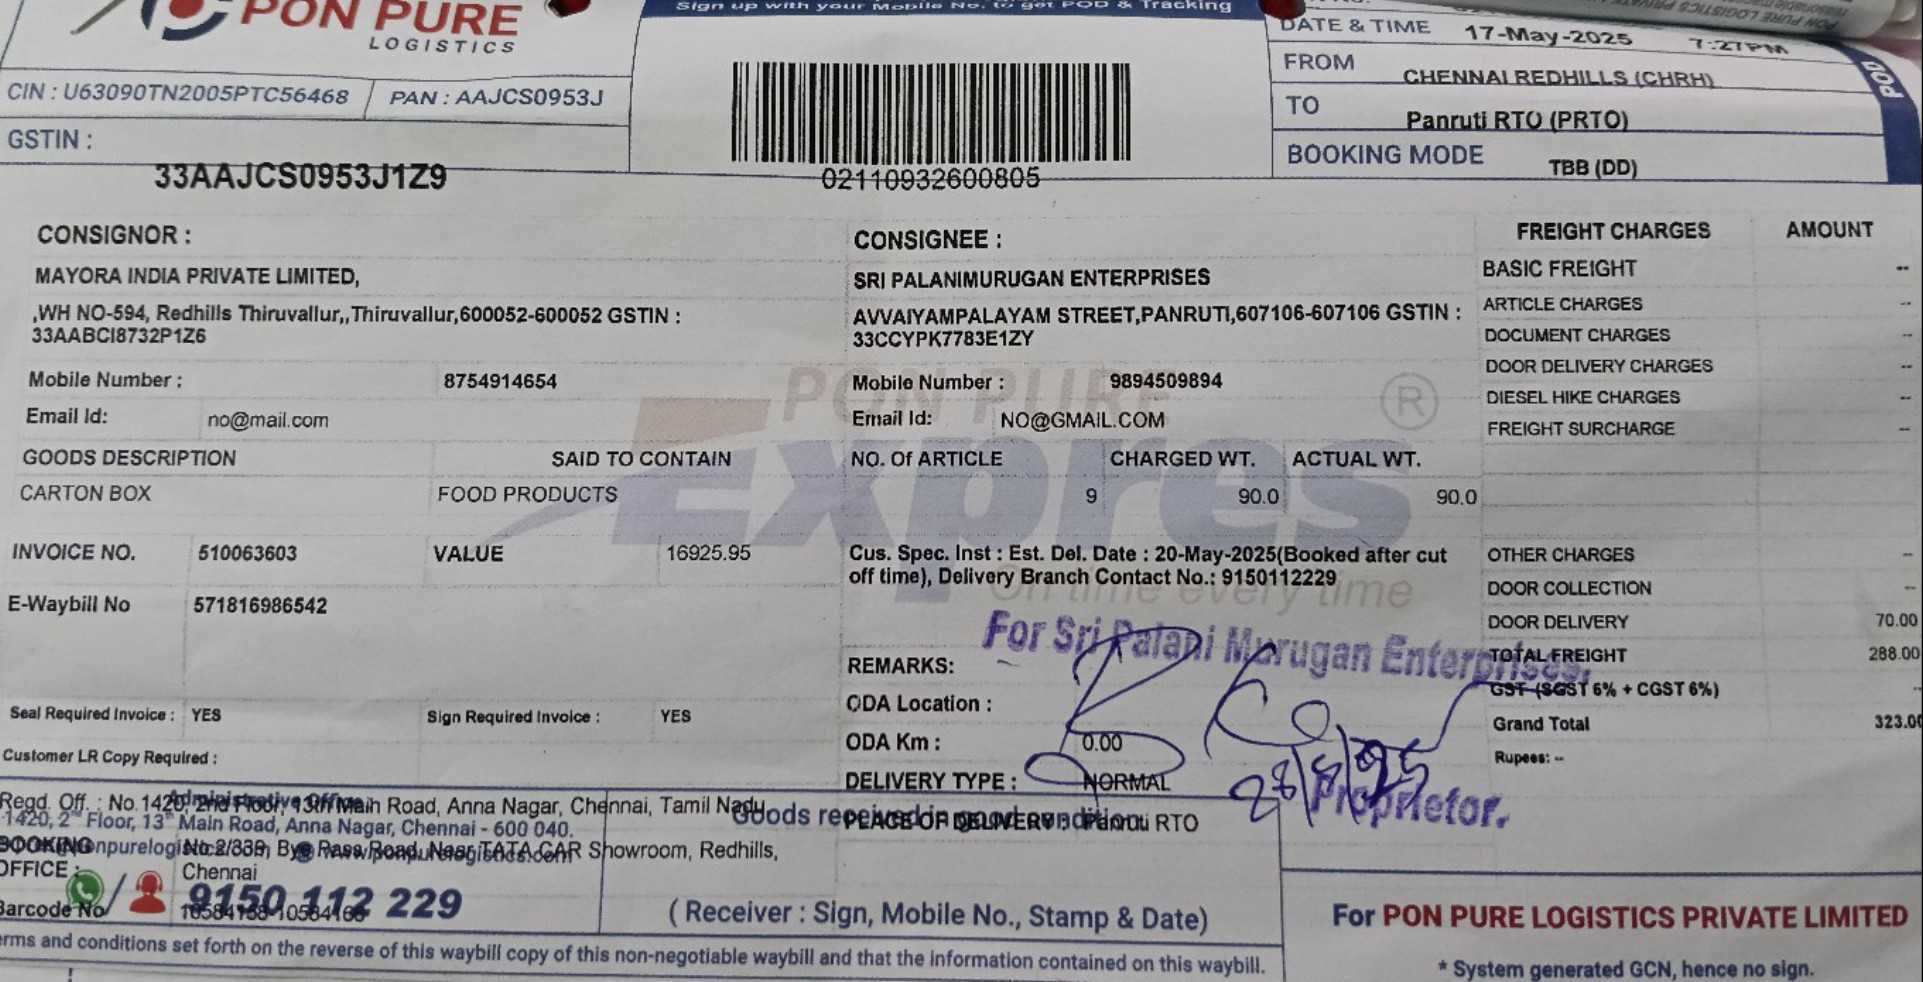 PON PURE
LOGISTICS
Sign up with your Mobile No. to get POD & Tracking
DATE & TIME 17-May-2025 7:27PM
FROM CHENNAI REDHILLS (CHRH)
TO Panruti RTO (PRTO)
BOOKING MODE TBB (DD)
POD
CIN : U63090TN2005PTC56468 PAN : AAJCS0953J
GSTIN :
33AAJCS0953J1Z9
02110932600805
CONSIGNOR :
MAYORA INDIA PRIVATE LIMITED,
,WH NO-594, Redhills Thiruvallur,,Thiruvallur,600052-600052 GSTIN :
33AABCI8732P1Z6
Mobile Number : 8754914654
Email Id: no@mail.com
CONSIGNEE :
SRI PALANIMURUGAN ENTERPRISES
AVVAIYAMPALAYAM STREET,PANRUTI,607106-607106 GSTIN :
33CCYPK7783E1ZY
Mobile Number : 9894509894
Email Id: NO@GMAIL.COM
FREIGHT CHARGES AMOUNT
BASIC FREIGHT --
ARTICLE CHARGES --
DOCUMENT CHARGES --
DOOR DELIVERY CHARGES --
DIESEL HIKE CHARGES --
FREIGHT SURCHARGE --
PON PURE
Expres ®
On time every time
GOODS DESCRIPTION SAID TO CONTAIN NO. Of ARTICLE CHARGED WT. ACTUAL WT.
CARTON BOX FOOD PRODUCTS 9 90.0 90.0
INVOICE NO. 510063603 VALUE 16925.95
E-Waybill No 571816986542
Cus. Spec. Inst : Est. Del. Date : 20-May-2025(Booked after cut
off time), Delivery Branch Contact No.: 9150112229
OTHER CHARGES --
DOOR COLLECTION --
DOOR DELIVERY 70.00
TOTAL FREIGHT 288.00
GST (SGST 6% + CGST 6%) --
Grand Total 323.00
Rupees: --
For Sri Palani Murugan Enterprises.
REMARKS:
ODA Location :
ODA Km : 0.00
DELIVERY TYPE : NORMAL
PLACE OF DELIVERY : Panruti RTO
Proprietor.
Seal Required Invoice : YES Sign Required Invoice : YES
Customer LR Copy Required :
Regd. Off. : No.1420, 2nd Floor, 13th Main Road, Anna Nagar, Chennai, Tamil Nadu
Administrative Office
1420, 2nd Floor, 13th Main Road, Anna Nagar, Chennai - 600 040.
Goods received in good condition.
BOOKING No.2/339, Bye Pass Road, Near TATA CAR Showroom, Redhills,
OFFICE : Chennai
9150 112 229
Barcode No
( Receiver : Sign, Mobile No., Stamp & Date)
For PON PURE LOGISTICS PRIVATE LIMITED
* System generated GCN, hence no sign.
terms and conditions set forth on the reverse of this waybill copy of this non-negotiable waybill and that the information contained on this waybill.